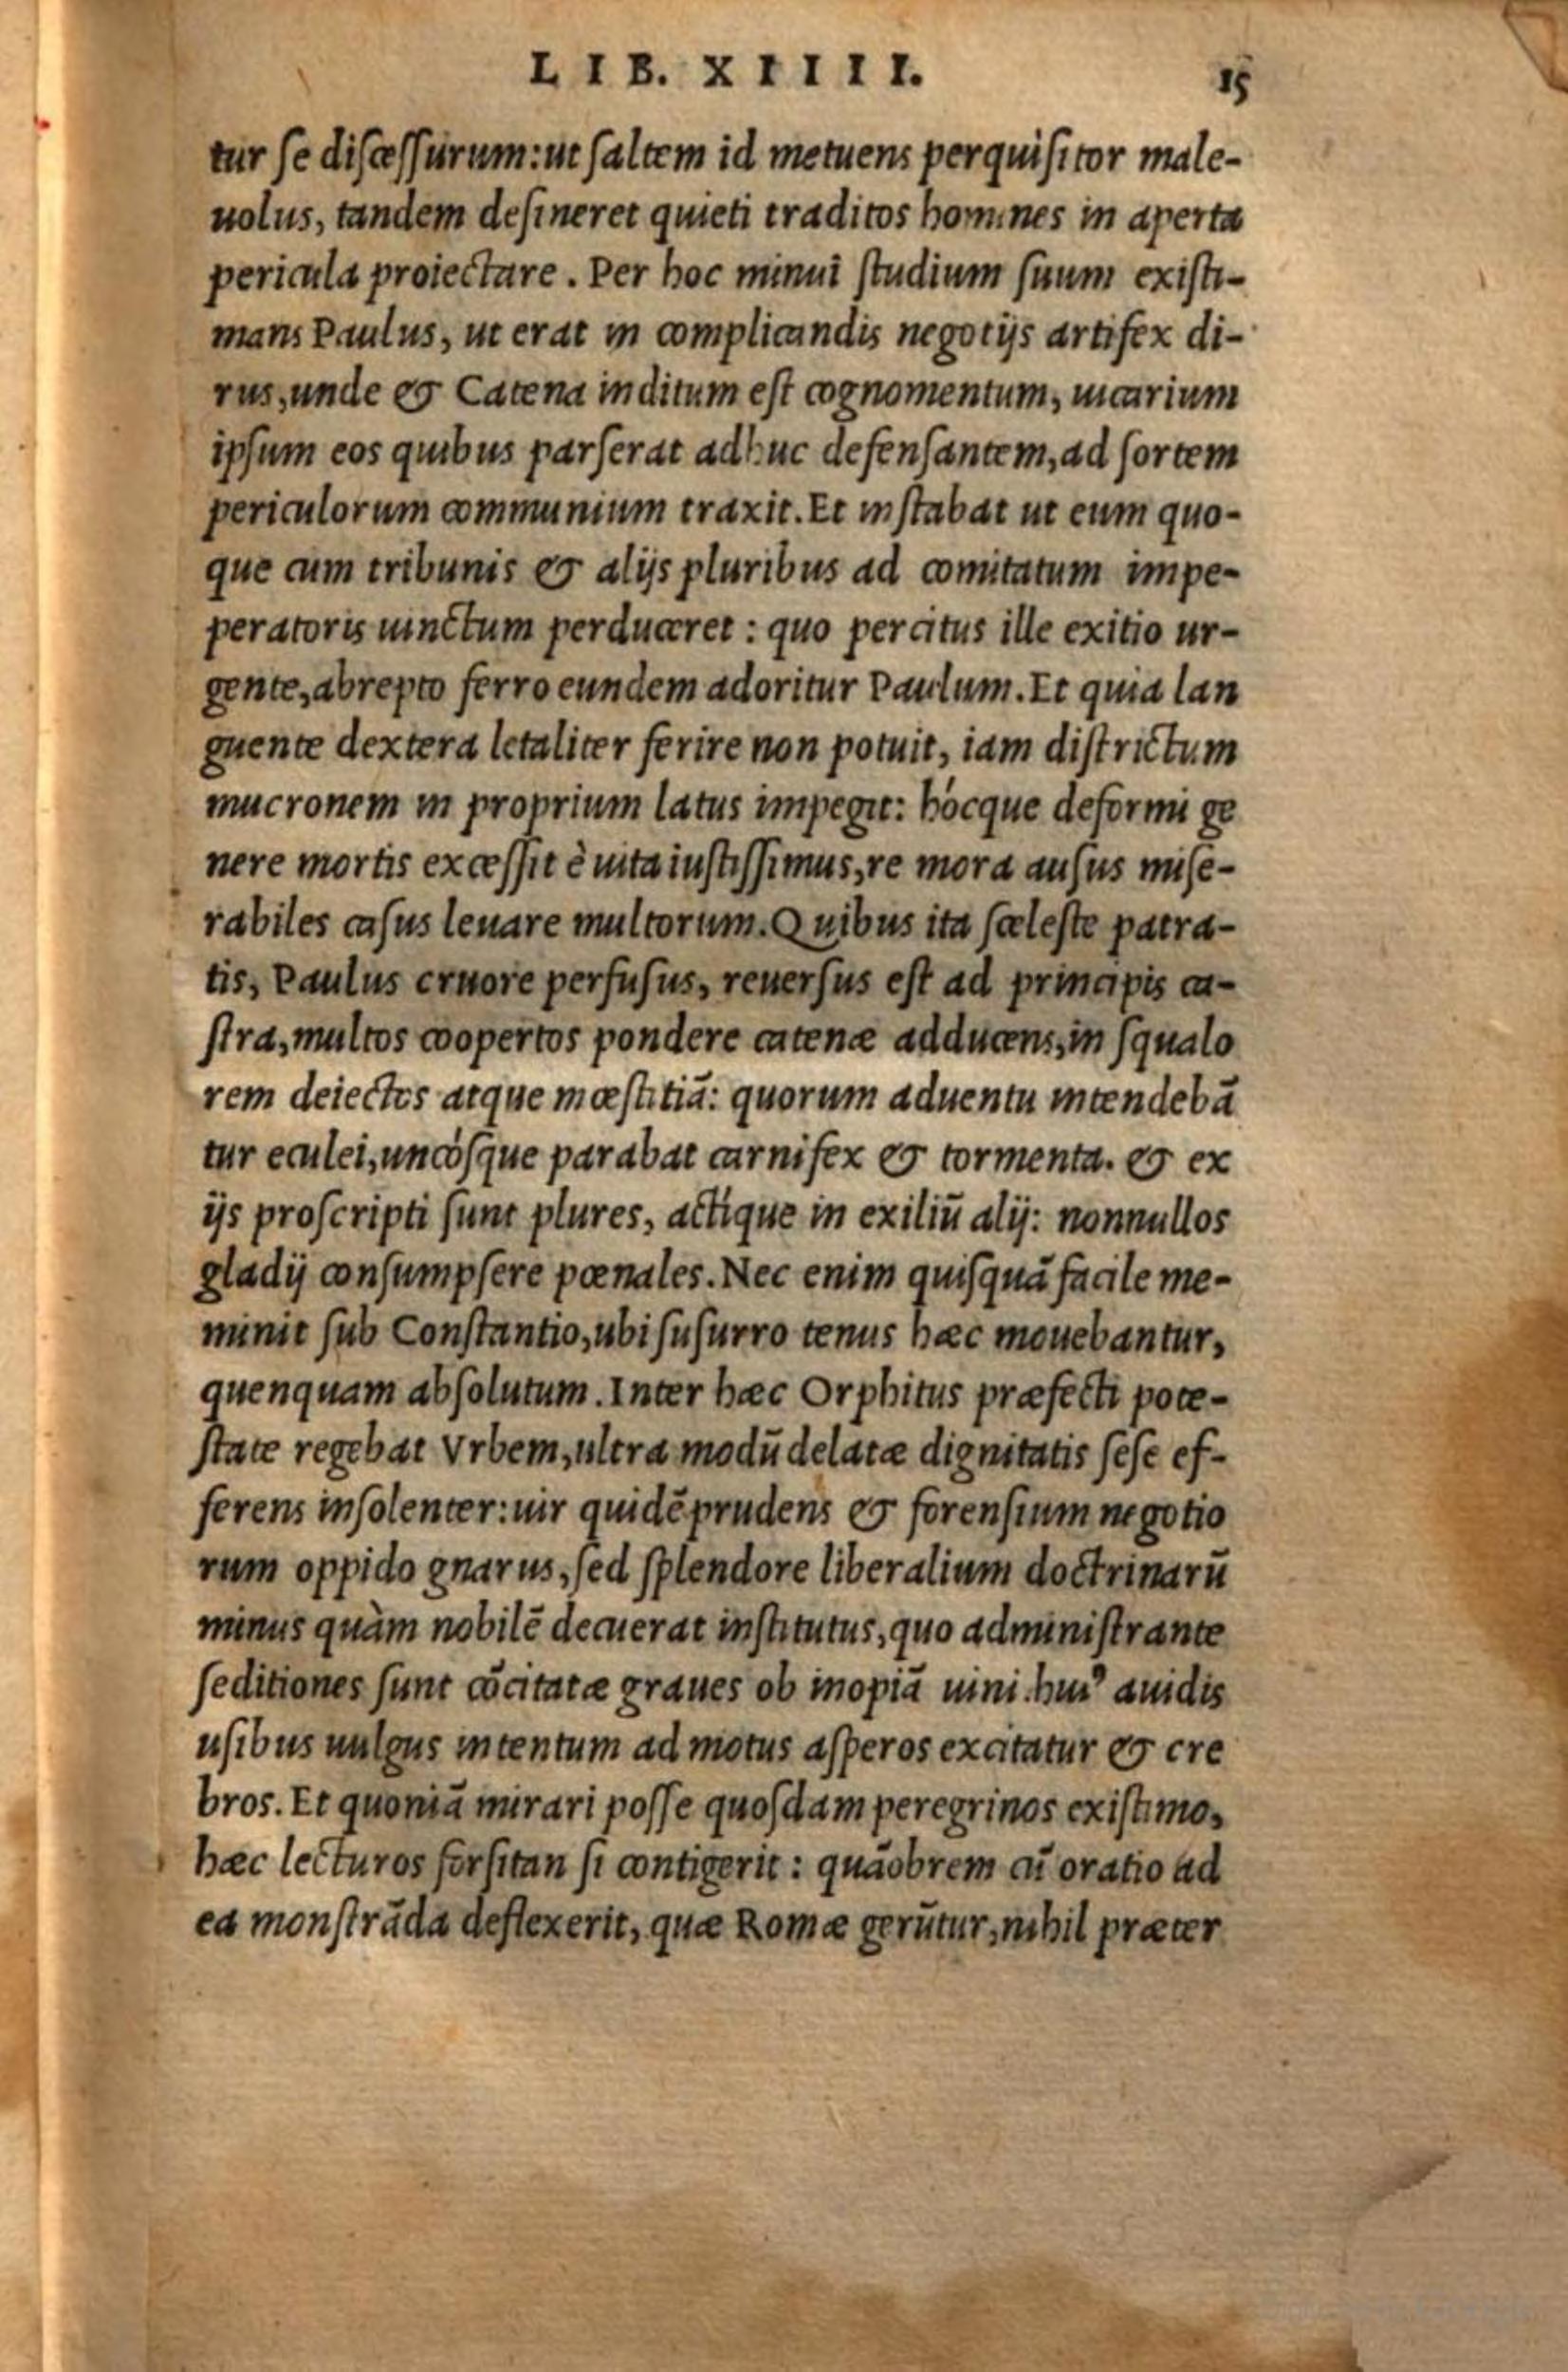 LIB. XIIII. 15
tur ſe diſceſſurum: ut ſaltem id metuens perquiſitor male-
uolus, tandem deſineret quieti traditos homines in aperta
pericula proiectare. Per hoc minui ſtudium ſuum exiſti-
mans Paulus, ut erat in complicandis negotijs artifex di-
rus, unde & Catena inditum eſt cognomentum, uicarium
ipſum eos quibus parſerat adhuc defenſantem, ad ſortem
periculorum communium traxit. Et inſtabat ut eum quo-
que cum tribunis & alijs pluribus ad comitatum impe-
peratoris uinctum perduceret: quo percitus ille exitio ur-
gente, abrepto ferro eundem adoritur Paulum. Et quia lan
guente dextera letaliter ferire non potuit, iam diſtrictum
mucronem in proprium latus impegit: hócque deformi ge
nere mortis exceſſit è uita iuſtiſſimus, re mora auſus miſe-
rabiles caſus leuare multorum. Quibus ita ſceleſte patra-
tis, Paulus cruore perfuſus, reuerſus eſt ad principis ca-
ſtra, multos coopertos pondere catenæ adducens, in ſqualo
rem deiectos atque mœſtitiã: quorum aduentu intendebã
tur eculei, uncósque parabat carnifex & tormenta. & ex
ijs proſcripti ſunt plures, actíque in exiliũ alij: nonnullos
gladij conſumpſere pœnales. Nec enim quiſquã facile me-
minit ſub Conſtantio, ubi ſuſurro tenus hæc mouebantur,
quenquam abſolutum. Inter hæc Orphitus præfecti pote-
ſtate regebat Vrbem, ultra modũ delatæ dignitatis ſeſe ef-
ferens inſolenter: uir quidẽ prudens & forenſium negotio
rum oppido gnarus, ſed ſplendore liberalium doctrinarũ
minus quàm nobilẽ decuerat inſtitutus, quo adminiſtrante
ſeditiones ſunt cõcitatæ graues ob inopiã uini. huiꝰ auidis
uſibus uulgus intentum ad motus aſperos excitatur & cre
bros. Et quoniã mirari poſſe quoſdam peregrinos exiſtimo,
hæc lecturos forſitan ſi contigerit: quãobrem cũ oratio ad
ea monſtrãda deflexerit, quæ Romæ gerũtur, nihil præter